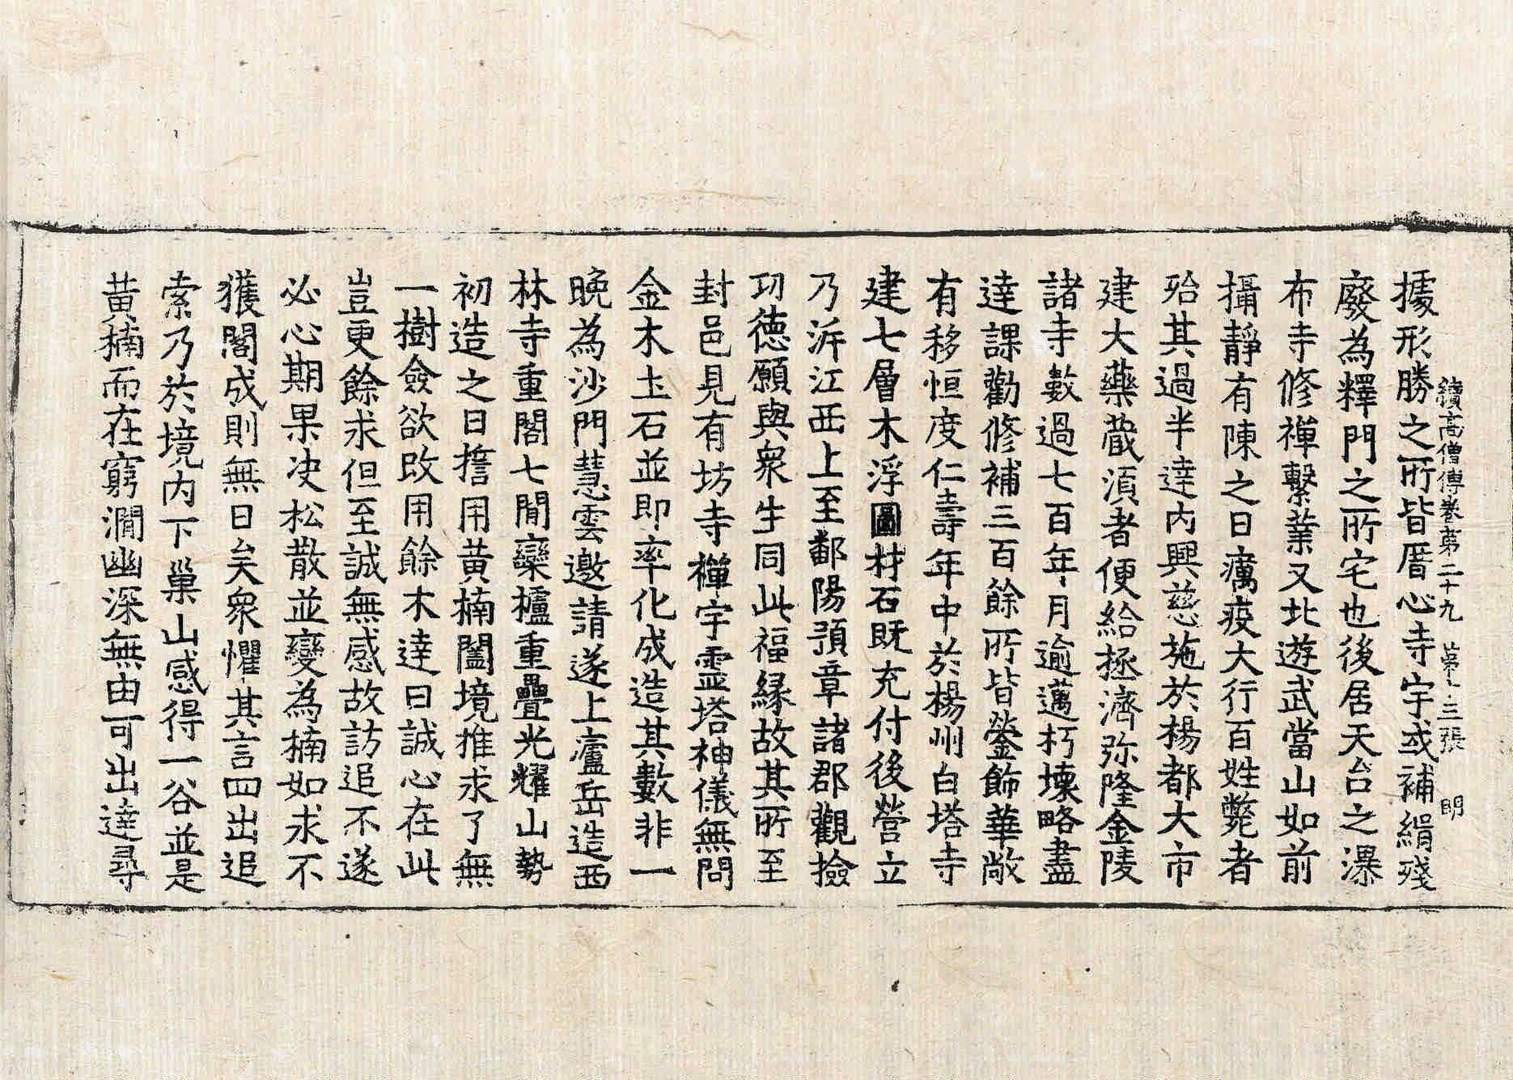 續高僧傳卷第二十九 第十三張 明
據形勝之所皆厝心寺宇或補緝殘
廢為釋門之所宅也後居天台之瀑
布寺修禪繫業又北遊武當山如前
攝靜有陳之日癘疫大行百姓斃者
殆其過半達內興慈施於楊都大市
建大藥藏湏者便給拯濟弥隆金陵
諸寺數過七百年月逾邁朽壞略盡
達課勸修補三百餘所皆鎣飾華敞
有移恒度仁壽年中於楊州白塔寺
建七層木浮圖材石既充付後營立
乃泝江西上至鄱陽預章諸郡觀撿
功德願與衆生同此福緣故其所至
封邑見有坊寺禪宇靈塔神儀無問
金木土石並即率化成造其數非一
晩為沙門慧雲邀請遂上廬岳造西
林寺重閣七間欒櫨重疊光耀山勢
初造之日誓用黃楠闔境推求了無
一樹僉欲改用餘木達曰誠心在此
豈更餘求但至誠無感故訪追不遂
必心期果决松散並變為楠如求不
獲閣成則無日矣衆懼其言四出追
索乃於境內下巢山感得一谷並是
黃楠而在窮澗幽深無由可出達尋